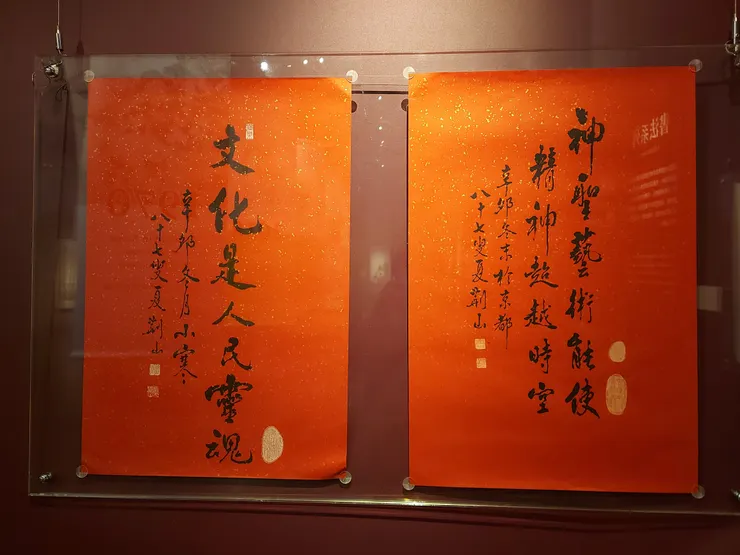 神聖藝術能使
精神超越時空
辛卯冬末於京都
八十七叟夏荆山
文化是人民靈魂
辛卯冬月小寒
八十七叟夏荆山